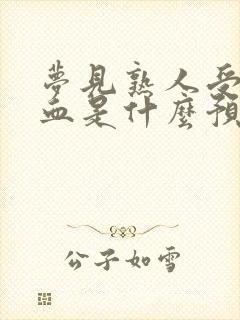 夢見熟人受
血是什麼預
公子如雪